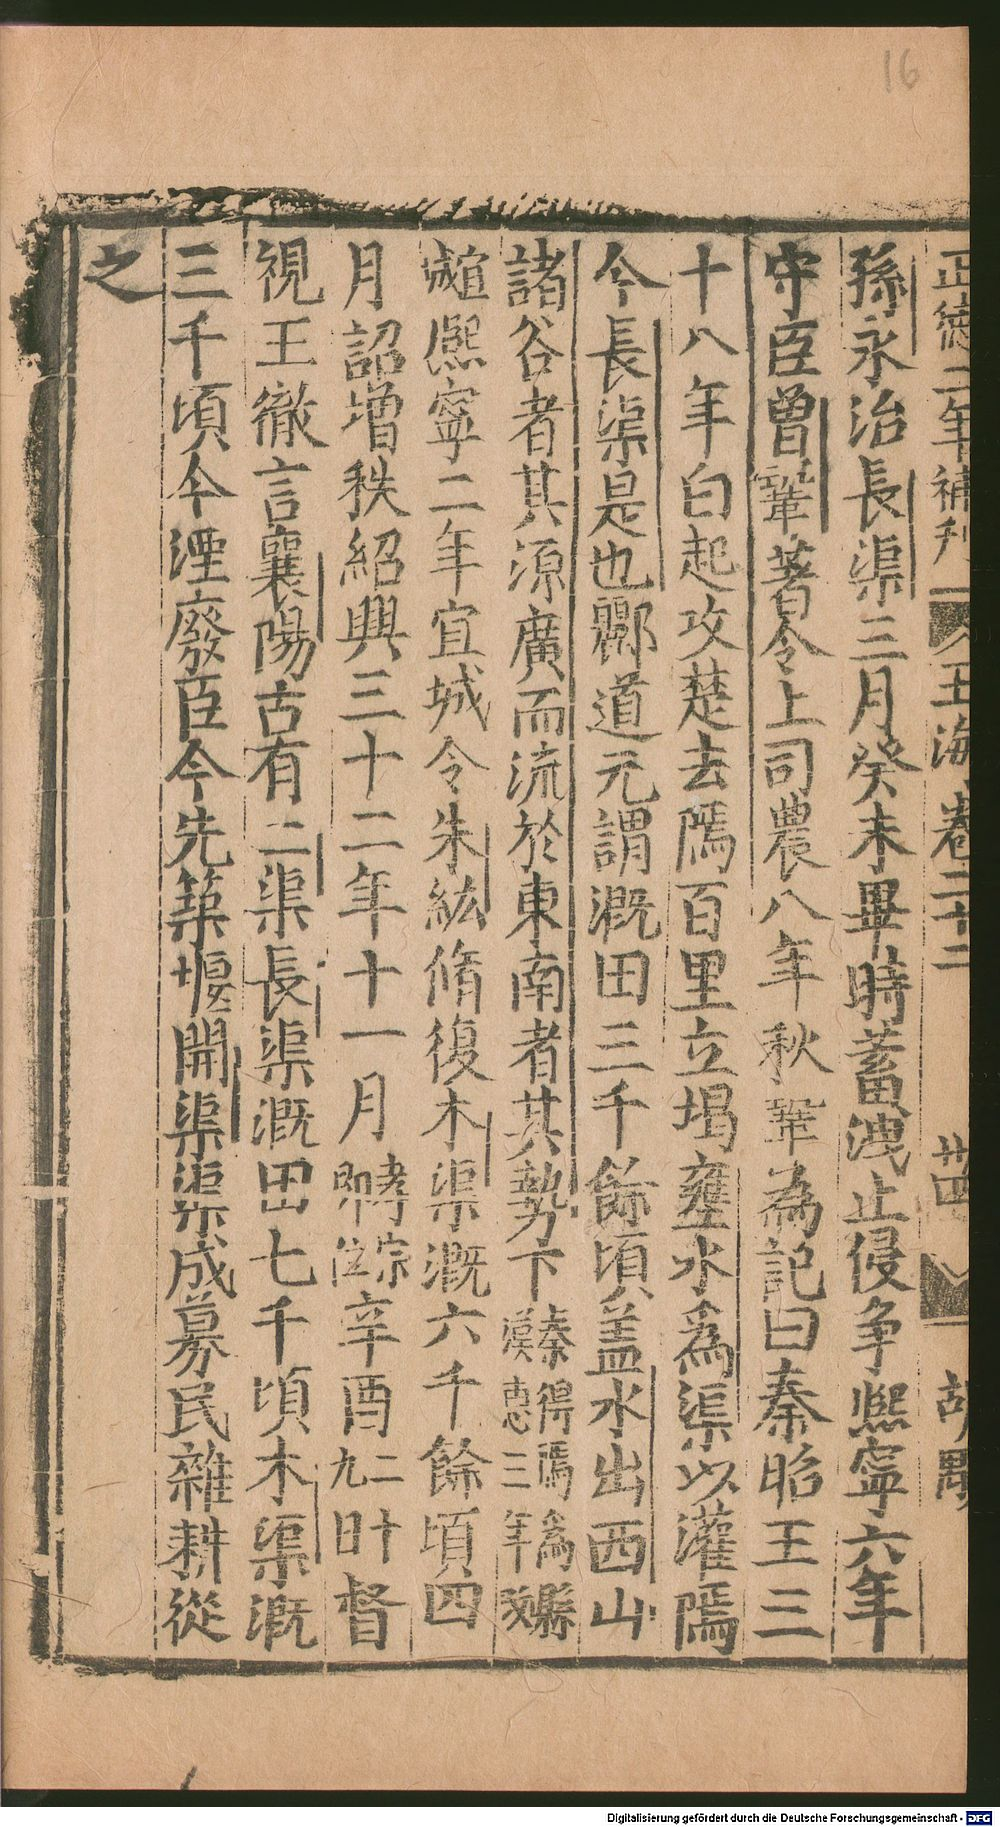 16
正德二年補刋
玉海卷二十二
廿四
胡
孫永治長渠三月癸未畢時蓄洩止侵争熈寧六年
守臣曾鞏著令上司農八年秋鞏為記曰秦昭王三
十八年白起攻楚去鄢百里立堨壅水爲渠以灌鄢
今長渠是也酈道元謂溉田三千餘頃盖水出西山
諸谷者其源廣而流於東南者其勢下秦得鄢為縣漢惠三年改
宜城熈寧二年宜城令朱紘脩復木渠溉六千餘頃四
月詔增秩紹興三十二年十一月孝宗即位辛酉二十九日督
視王徹言襄陽古有二渠長渠溉田七千頃木渠溉
三千頃今湮廢臣今先築堰開渠渠成募民雜耕從
之
Digitalisierung gefördert durch die Deutsche Forschungsgemeinschaft - DFG